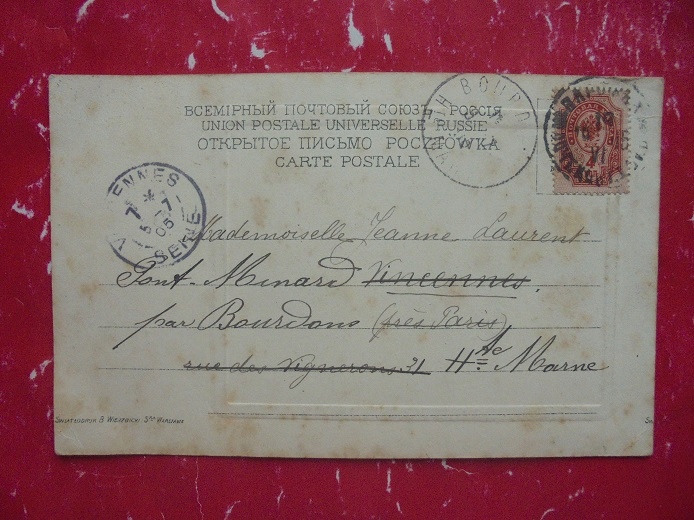 ВСЕМІРНЫЙ ПОЧТОВЫЙ СОЮЗЪ РОССІЯ
UNION POSTALE UNIVERSELLE RUSSIE
ОТКРЫТОЕ ПИСЬМО POCZTÓWKA
CARTE POSTALE
VINCENNES
7 * 5 - 7 - 05
SEINE
Mademoiselle Jeanne Laurent
Pont-Minard Vincennes.
par Bourdons (près Paris)
rue des Vignerons 31 Hte Marne
WARSZAWA